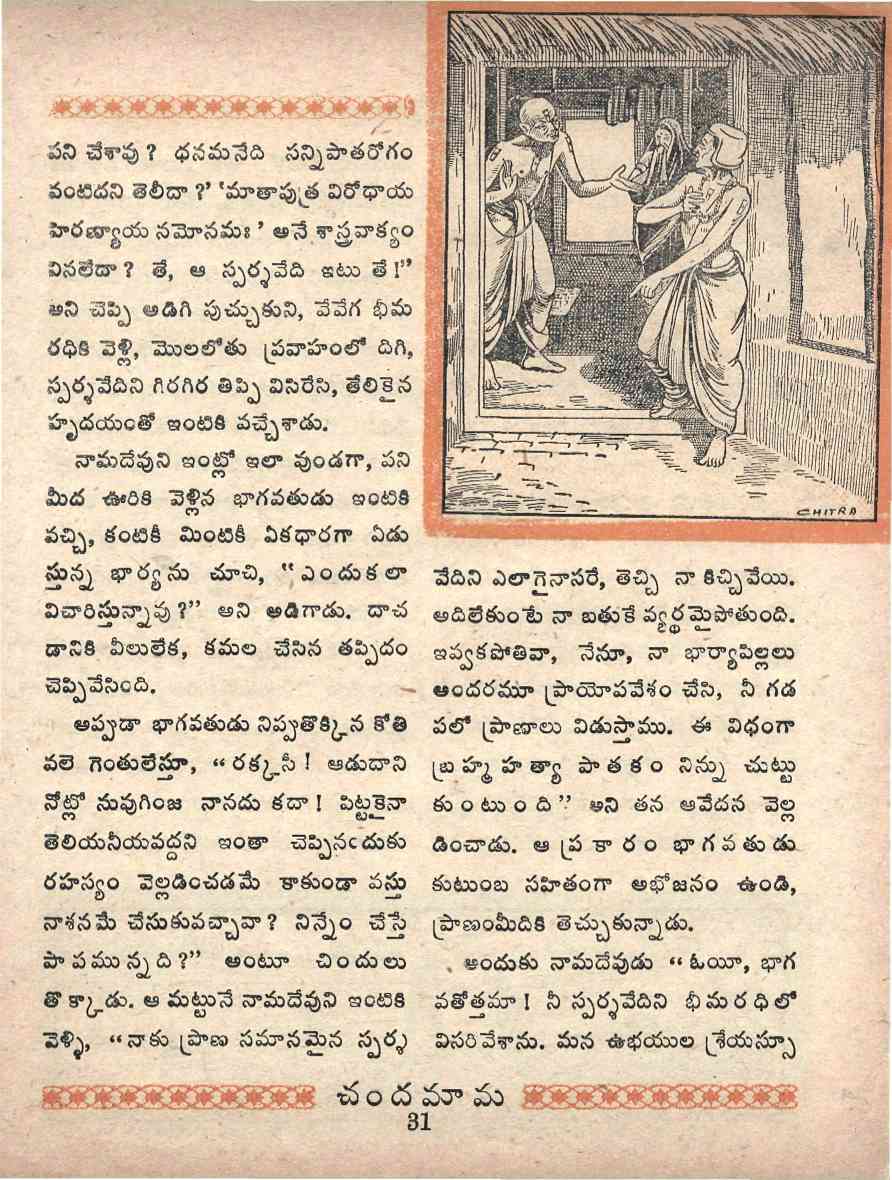 పని చేశావు ? ధనమనేది సన్నిపాతరోగం
వంటిదని తెలీదా ?' 'మాతాపుత్ర విరోధాయ
హిరణ్యాయ నమోనమః' అనే శాస్త్రవాక్యం
వినలేదా ? తే, ఆ స్పర్శవేది ఇటు తే !"
అని చెప్పి అడిగి పుచ్చుకుని, వేవేగ భీమ
రధికి వెళ్లి, మొలలోతు ప్రవాహంలో దిగి,
స్పర్శవేదిని గిరగిర తిప్పి విసిరేసి, తేలికైన
హృదయంతో ఇంటికి వచ్చేశాడు.
నామదేవుని ఇంట్లో ఇలా వుండగా, పని
మీద ఊరికి వెళ్లిన భాగవతుడు ఇంటికి
వచ్చి, కంటికీ మింటికీ ఏకధారగా ఏడు
స్తున్న భార్యను చూచి, "ఎందుకలా
విచారిస్తున్నావు ?" అని అడిగాడు. దాచ
డానికి వీలులేక, కమల చేసిన తప్పిదం
చెప్పివేసింది.
అప్పుడా భాగవతుడు నిప్పుతొక్కిన కోతి
వలె గెంతులేస్తూ, "రక్కసీ ! ఆడుదాని
నోట్లో నువుగింజ నానదు కదా ! పిట్టకైనా
తెలియనీయవద్దని ఇంతా చెప్పినఁదుకు
రహస్యం వెల్లడించడమే కాకుండా వస్తు
నాశనమే చేసుకువచ్చావా ? నిన్నేం చేస్తే
పాపమున్నది ?" అంటూ చిందులు
తొక్కాడు. ఆ మట్టునే నామదేవుని ఇంటికి
వెళ్ళి, "నాకు ప్రాణ సమానమైన స్పర్శ
CHITRA
వేదిని ఎలాగైనాసరే, తెచ్చి నా కిచ్చివేయి.
అదిలేకుంటే నా బతుకే వ్యర్థమైపోతుంది.
ఇవ్వకపోతివా, నేనూ, నా భార్యాపిల్లలు
అందరమూ ప్రాయోపవేశం చేసి, నీ గడ
పలో ప్రాణాలు విడుస్తాము. ఈ విధంగా
బ్రహ్మహత్యా పాతకం నిన్ను చుట్టు
కుంటుంది" అని తన ఆవేదన వెల్ల
డించాడు. ఆ ప్రకారం భాగవతుడు
కుటుంబ సహితంగా అభోజనం ఉండి,
ప్రాణంమీదికి తెచ్చుకున్నాడు.
అందుకు నామదేవుడు "ఓయీ, భాగ
వతోత్తమా ! నీ స్పర్శవేదిని భీమరధిలో
విసరివేశాను. మన ఉభయుల శ్రేయస్సూ
చందమామ
31